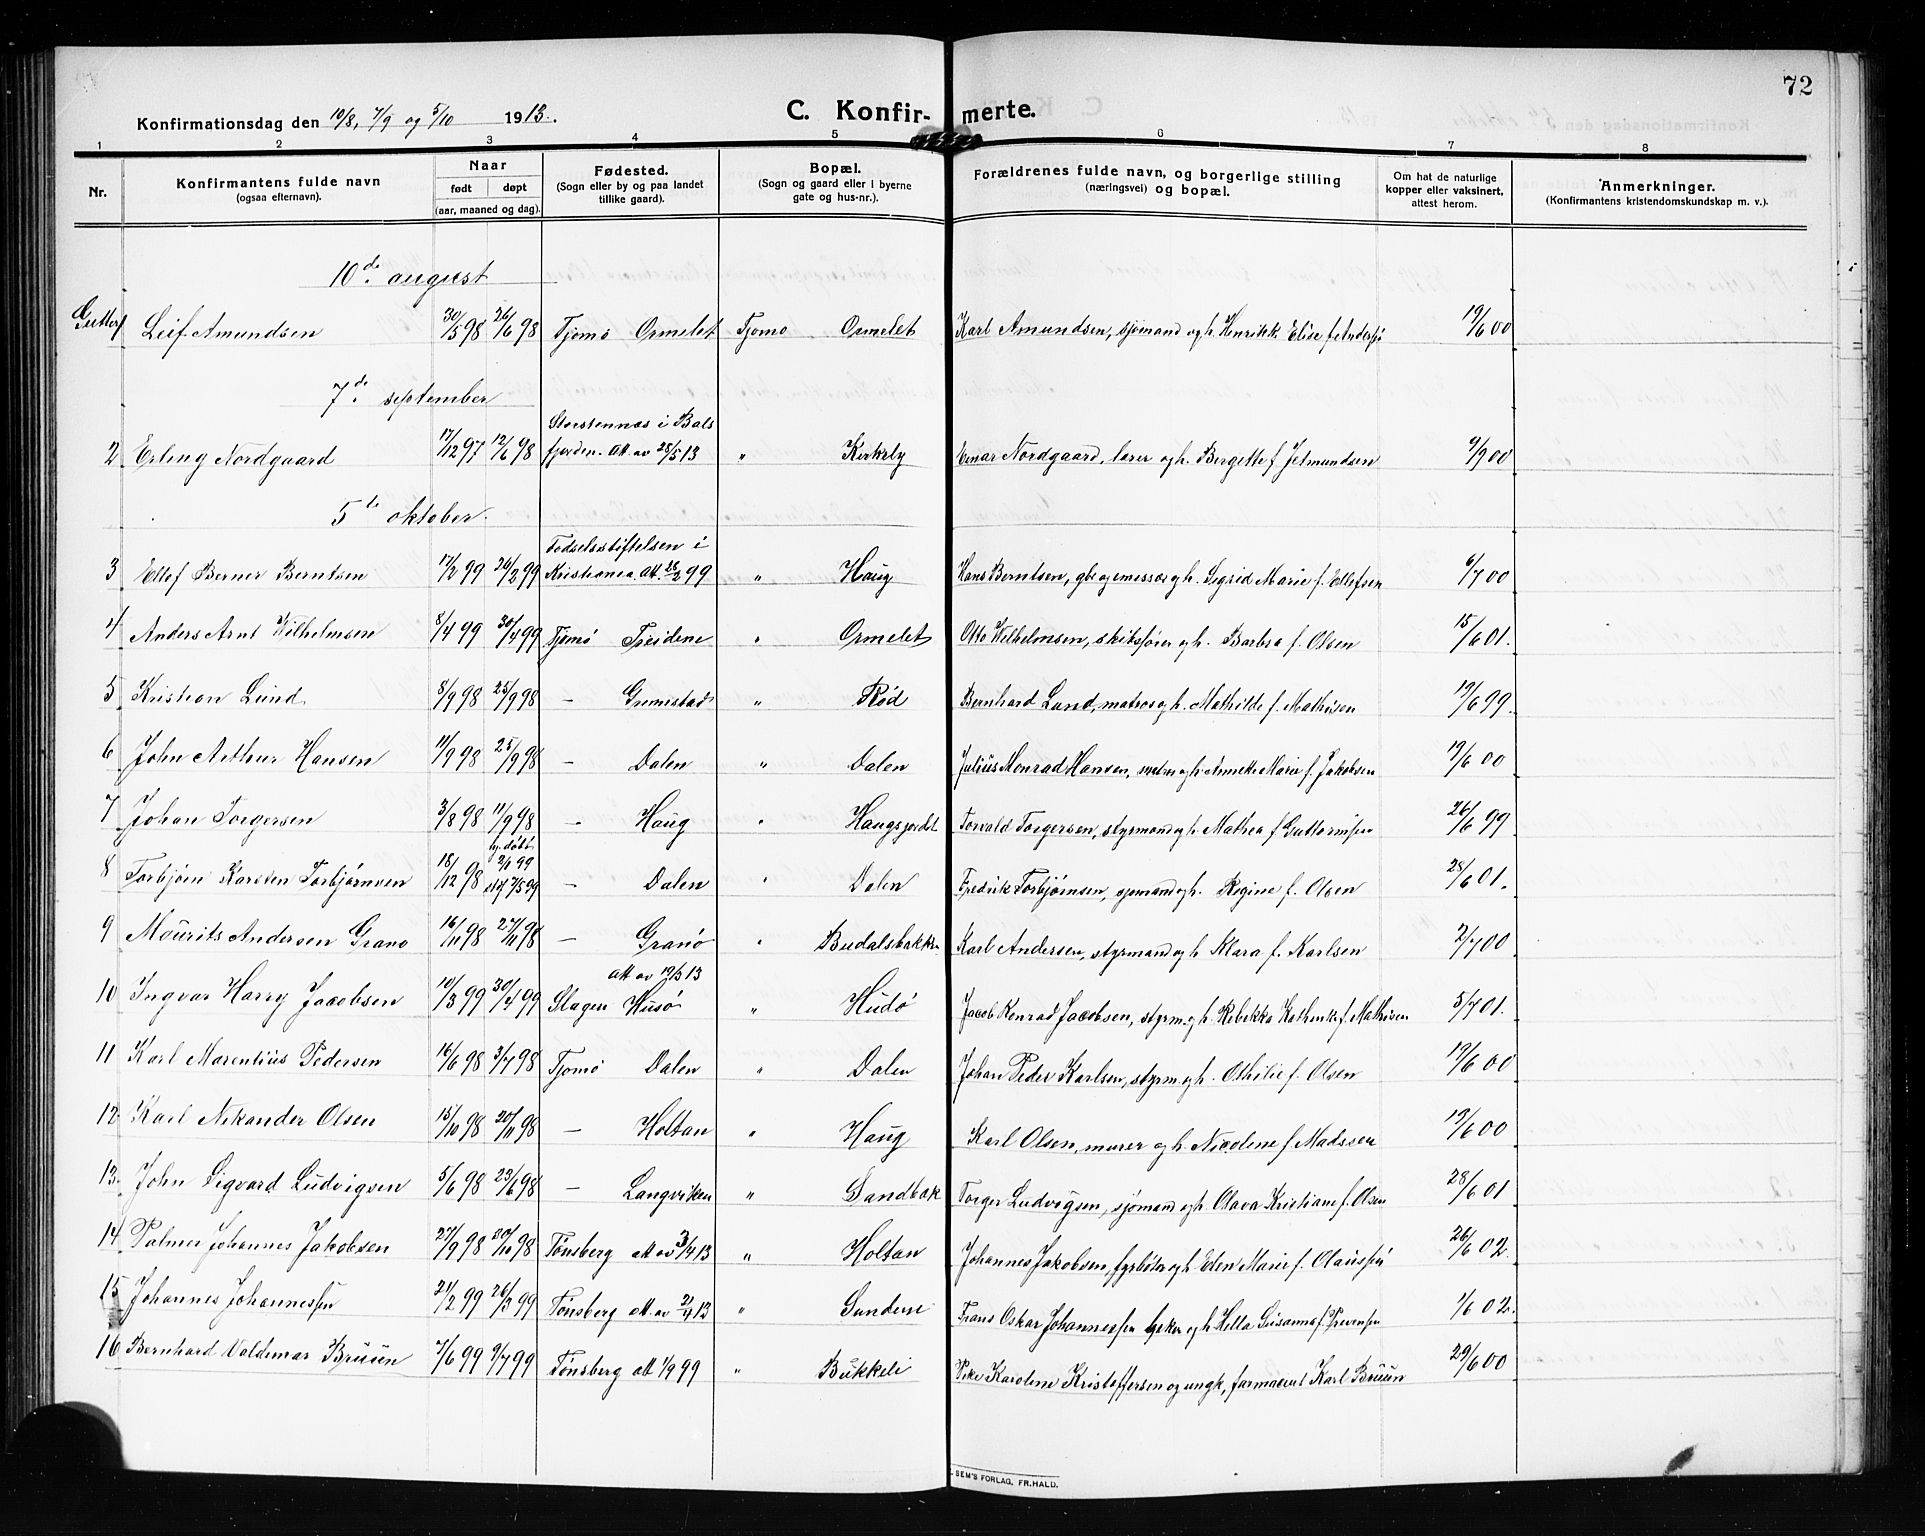 72
Konfirmationsdag den 10/8, 7/9 og 5/10 1913.
C. Konfir-merte.
1 2 3 4 5 6 7 8
Nr. Konfirmantens fulde navn (ogsaa efternavn). Naar født døpt (aar, maaned og dag). Fødested. (Sogn eller by og paa landet tillike gaard). Bopæl. (Sogn og gaard eller i byerne gate og hus-nr.). Forældrenes fulde navn, og borgerlige stilling (næringsvei) og bopæl. Om hat de naturlige kopper eller vaksinert, attest herom. Anmerkninger. (Konfirmantens kristendomskundskap m. v.).
10de august
Gutter
1 Leif Amundsen 30/5 98 26/6 98 Tjømø Ormelet Tjømø Ormelet Karl Amundsen, sjømand og h. Henrikk Elise f. Anders 19/6 00
7de september
2 Erling Nordgaard 17/12 97 12/6 98 Storstennes i Balsfjorden. att. av 28/5 13 " Kirkeby Einar Nordgaard, lærer og h. Bergette f. Jetmundsen 9/9 00
5te oktober
3 Ellef Berner Berntsen 17/2 99 26/2 99 Fødselsstiftelsen i Kristiania. att. 28/2 99 " Haug Hans Berntsen, h. Sigrid Marie f. Ellefsen 6/7 00
4 Anders Arnt Wilhelmsen 8/4 99 30/4 99 Tjømø Treidene " Ormelet Otto Wilhelmsen, skibsfører og h. Barbra f. Olsen 15/6 01.
5 Kristian Lund 8/9 98 25/9 98 — Grimestad " Rød Bernhard Lund, matros og h. Mathilde f. Mathisen 19/6 99.
6 John Arthur Hansen 11/9 98 25/9 98 — Dalen " Dalen Julius Monrad Hansen, og h. Annette Marie f. Jakobsen 19/6 00
7 Johan Torgersen 3/8 98 11/9 98 — Haug " Haugsjordet Torvald Torgersen, styrmand og h. Mathea f. Guttormsen 26/6 99
8 Torbjørn Karsten Torbjørnsen 18/12 98 hj. døbt 2/1 99 stf 7/5 99 — Dalen " Dalen Fredrik Torbjørnsen, sjømand og h. Regine f. Olsen 28/6 01.
9 Mourits Andersen Granø 16/11 98 27/11 98 — Granø " Budalsbakken Karl Andersen, styrmand og h. Klara f. Karlsen 2/7 00
10 Ingvar Harry Jacobsen 10/3 99 30/4 99 Slagen Husø att av 19/3 13 " Hudø Jacob Konrad Jacobsen, styrm. og h. Rebekka Kathinka f. Mathisen 5/7 01.
11 Karl Marentius Pedersen 16/6 98 3/7 98 Tjømø Dalen " Dalen Johan Peder Karlsen, styrm. og h. Othilie f. Olsen 19/6 00
12 Karl Nikander Olsen 15/10 98 20/11 98 — Holtan " Haug Karl Olsen, murer og h. Nicoline f. Madssen 19/6 00
13 John Sigvard Ludvigsen 5/6 98 23/6 98 — Langviken " Sandbæk Torger Ludvigsen, sjømand og h. Olava Kristiane f. Olsen 28/6 01
14 Palmer Johannes Jakobsen 27/9 98 30/10 98 Tønsberg att av 3/4 13 " Holtan Johannes Jakobsen, fyrbøter og h. Elen Marie f. Olaussen 26/6 02.
15 Johannes Johannessen 21/2 99 26/3 99 Tønsberg att. av 2/4 13 " Sandene Frans Oskar Johannessen og h. Hella Susanna f. Svensen 1/6 02.
16 Bernhard Valdemar Bruun 7/6 99 9/7 99 Tønsberg att 1/9 99 " Bukkeli Pike Karoline Kristoffersen og ungk. farmaceut Karl Bruun 29/6 00
SEM'S FORLAG, FR.HALD.